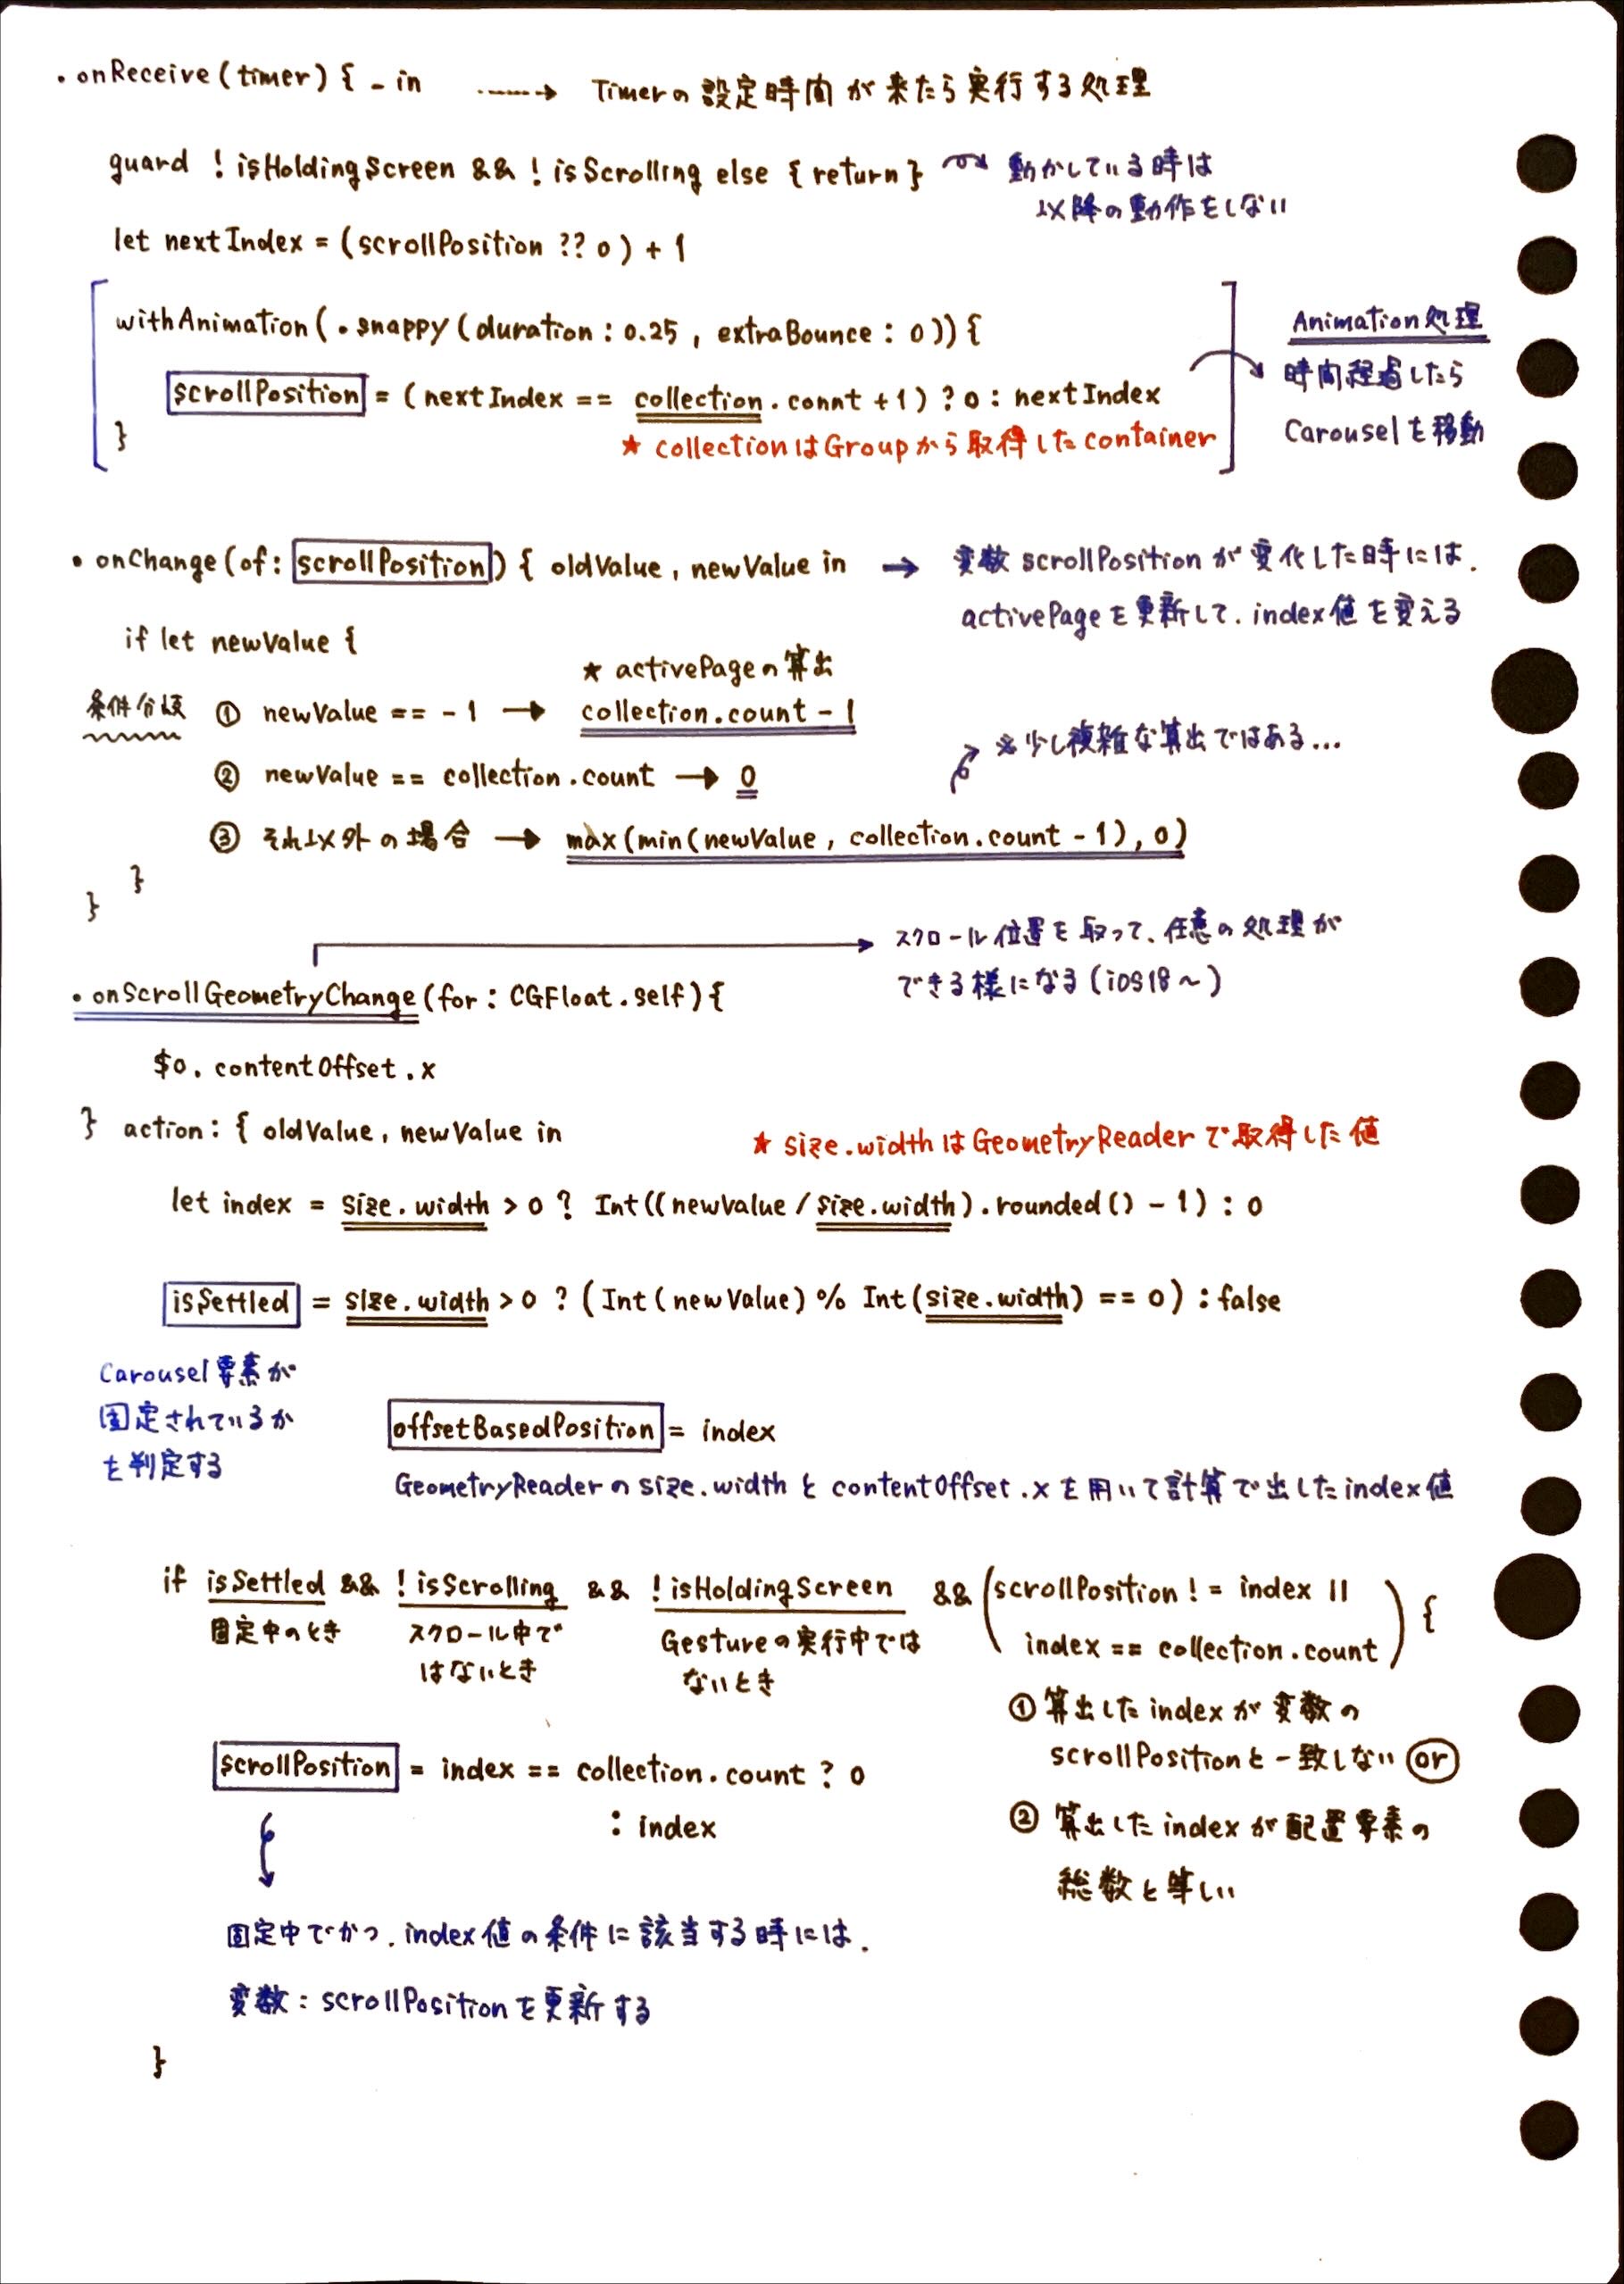 .onReceive(timer) { _ in ------→ Timerの設定時間が来たら実行する処理
guard !isHoldingScreen && !isScrolling else {return} 動かしている時は
以降の動作をしない
let nextIndex = (scrollPosition ?? 0) + 1
withAnimation(.snappy(duration: 0.25, extraBounce: 0)) {
Animation処理
scrollPosition = (nextIndex == collection.connt +1) ? 0 : nextIndex
時間経過したら
}
Carouselを移動
★ collectionはGroupから取得したcontainer
• onChange(of: scrollPosition) { oldValue, newValue in → 変数 scrollPositionが変化した時には.
activePageを更新して.index値を変える
if let newValue {
★ activePageの算出
条件分岐 ① newValue == -1 → collection.count - 1
※少し複雑な算出ではある...
② newValue == collection.count → 0
③ それ以外の場合 → max(min(newValue, collection.count - 1), 0)
}
}
スクロール位置を取って、任意の処理が
できる様になる (iOS18〜)
.onScrollGeometryChange(for: CGFloat.self) {
$0.contentOffset.x
} action: { oldValue, newValue in
★ size.widthはGeometryReaderで取得した値
let index = size.width > 0 ? Int((newValue / size.width).rounded() - 1) : 0
isSettled = size.width > 0 ? (Int(newValue) % Int(size.width) == 0) : false
Carousel要素が
固定されているか
を判定する
offsetBasedPosition = index
GeometryReaderのsize.widthとcontentOffset.xを用いて計算で出したindex値
if isSettled && !isScrolling && !isHoldingScreen && (scrollPosition != index ||
index == collection.count) {
固定中のとき
スクロール中で
はないとき
Gestureの実行中では
ないとき
① 算出したindexが変数の
scrollPositionと一致しない or
② 算出したindexが配置要素の
総数と等しい
scrollPosition = index == collection.count ? 0
: index
固定中でかつ.index値の条件に該当する時には.
変数:scrollPositionを更新する
}